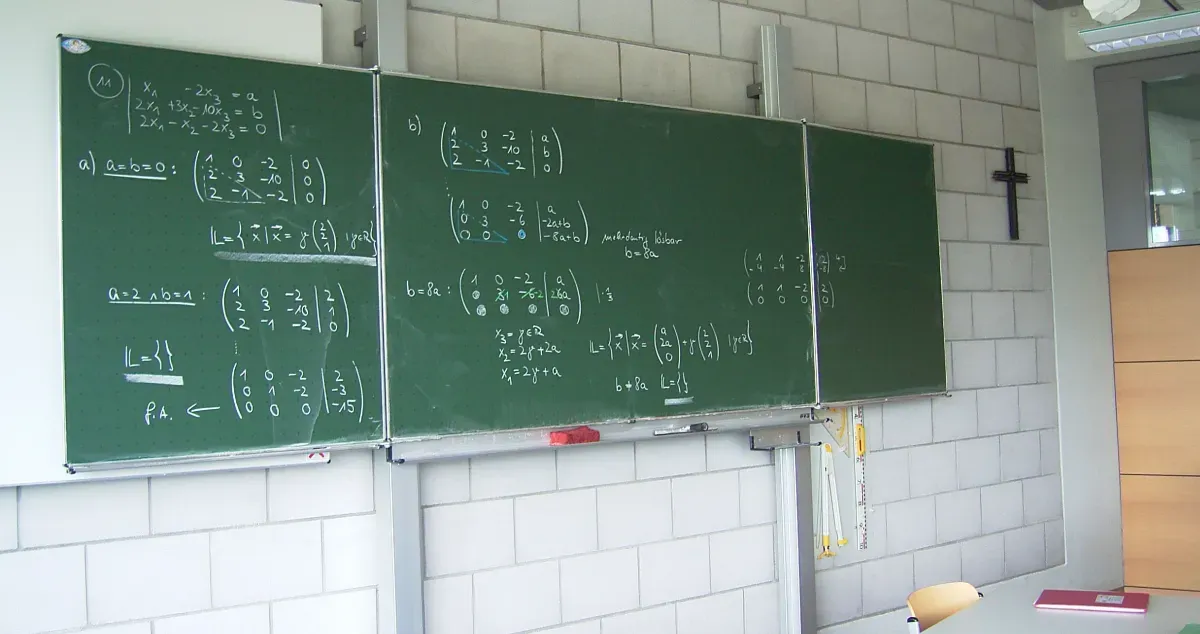 11
x₁ -2x₃ = a
2x₁ +3x₂ -10x₃ = b
2x₁ - x₂ - 2x₃ = 0
a) a=b=0 :
1 0 -2 | 0
2 3 -10 | 0
2 -1 -2 | 0
𝕃={ x⃗ | x⃗ = γ (2 2 1) | γ∈ℝ}
a=2 ∧ b=1 :
1 0 -2 | 2
2 3 -10 | 1
2 -1 -2 | 0
𝕃={}
1 0 -2 | 2
0 1 -2 | -3
0 0 0 | -15
f.A. ←
b)
1 0 -2 | a
2 3 -10 | b
2 -1 -2 | 0
1 0 -2 | a
0 3 -6 | -2a+b
0 0 0 | -8a+b
mehrdeutig lösbar
b=8a
b=8a :
1 0 -2 | a
| :3
x₃ = γ∈ℝ
x₂ = 2γ+2a
x₁ = 2γ+a
𝕃={ x⃗ | x⃗ = (a 2a 0) + γ (2 2 1) | γ∈ℝ}
b≠8a 𝕃={}
1 1 -2
-4 -4 8
1 1 -2 2
0 0 0 0